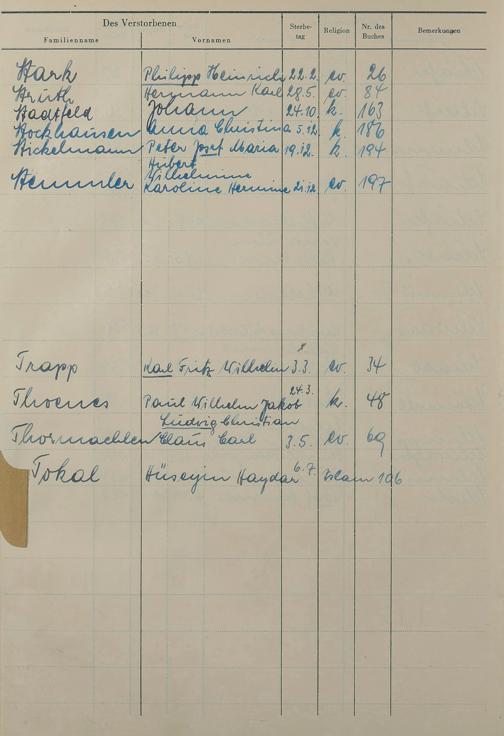 Des Verstorbenen Sterbe- Religion Nr. des Bemerkungen
Familienname Vornamen tag Buches
Stark Philipp Heinrich 22.2. ev. 26
Struth Hermann Karl 28.5. ev. 84
Stadtfeld Johann 24.10. k. 163
Stockhausen Anna Christina 5.12. k. 186
Stickelmann Peter Josef Maria 19.12. k. 194
Hubert
Wilhelmine
Stemmler Karoline Hermine 21.12. ev. 197
Trapp Karl Fritz Wilhelm 3.3. ev. 34
Thoenes Paul Wilhelm Jakob 24.3. k. 48
Ludwig Christian
Thormaehlen Claus Carl 3.5. ev. 69
Tokal Hüseyin Haydar 6.7. Islam 106